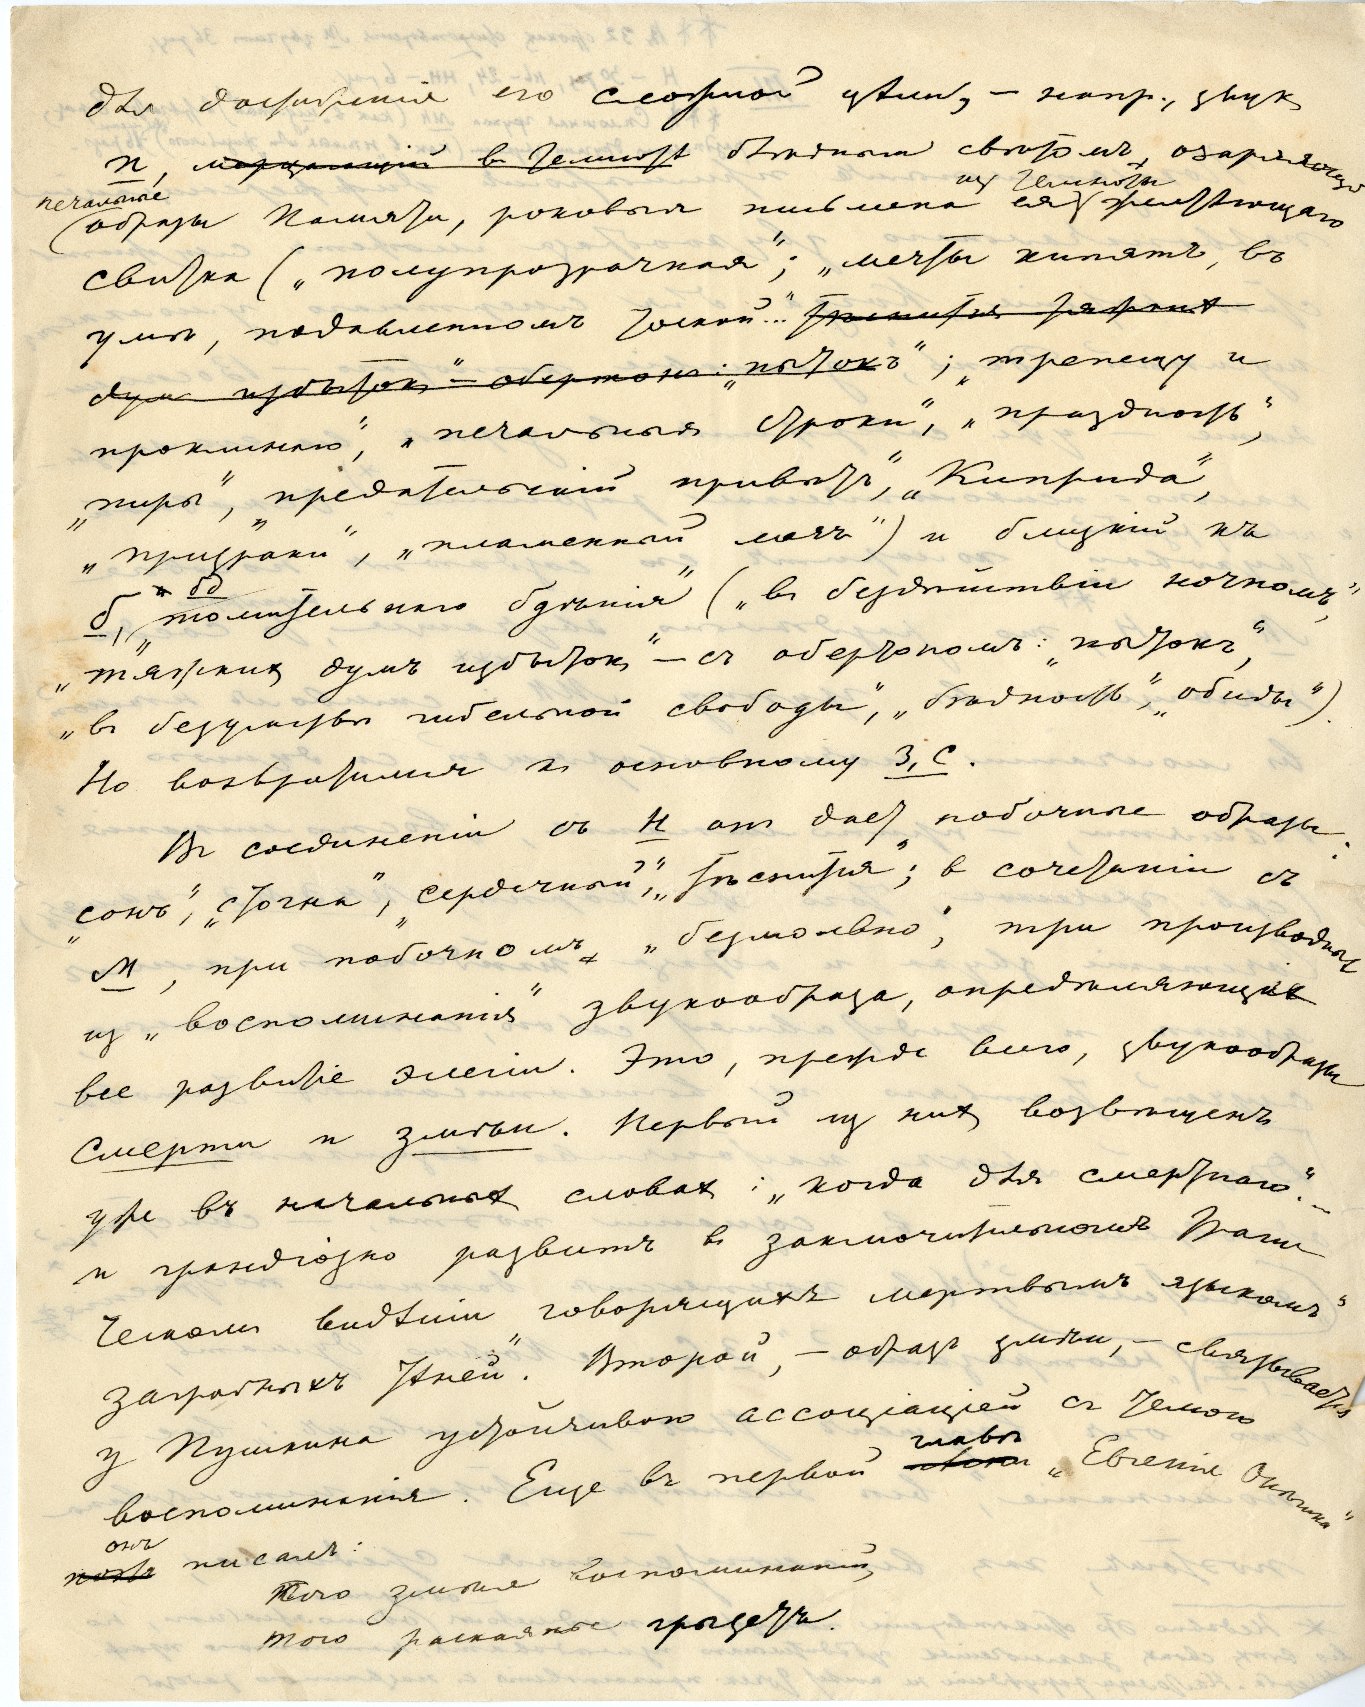 для достиженія его сложной цѣли, – напр., звук
п, мерцающій в темнотѣ блѣдным свѣтомъ, озаряющій
печальные из темноты
образы Памяти, роковыя письмена ея желтѣющаго
свитка („полупрозрачная“; „мечты кипятъ, въ
умѣ, подавленномъ тоской...“ тѣснится тяжких
дум избыток“ – обертонъ: „пытокъ“; „трепещу и
проклинаю“, „печальныя строки“, „праздность“,
„пиры“, „предательскій привѣтъ“, „Киприда“,
„призраки“, „пламенный мечъ“) и близкій къ
бд
б, „томительнаго бдѣнія“ („въ бездѣйствіи ночномъ“,
„тяжких думъ избыток“ – съ обертономъ: „пытокъ“,
„въ безумствѣ гибельной свободы“, „бѣдность“, „обиды“).
Но возвратимся къ основному З, С.
Въ соединеніи съ Н онъ дает побочные образы:
„сонъ“, „стогна“, „сердечный“, „тѣснится“; в сочетаніи съ
М, при побочномъ „безмолвно“, три производных
из „воспоминанія“ звукообраза, опредѣляющих
все развитіе элегіи. Это, прежде всего, звукообразы
смерти и змѣи. Первый из них возвѣщенъ
уже въ начальных словах: „когда для смертнаго“...
и грандіозно развитъ в заключительномъ
ческом видѣніи говорящихъ мертвымъ языкомъ“
загробныхъ тѣней“. Второй, – образ змѣи, – связывается
у Пушкина устойчивою ассоціаціей съ темою
воспоминанія. Еще въ первой главѣ „Евгенія Онѣгина“
онъ
поэт писалъ:
Того змѣя воспоминаній,
того раскаянье грызетъ.